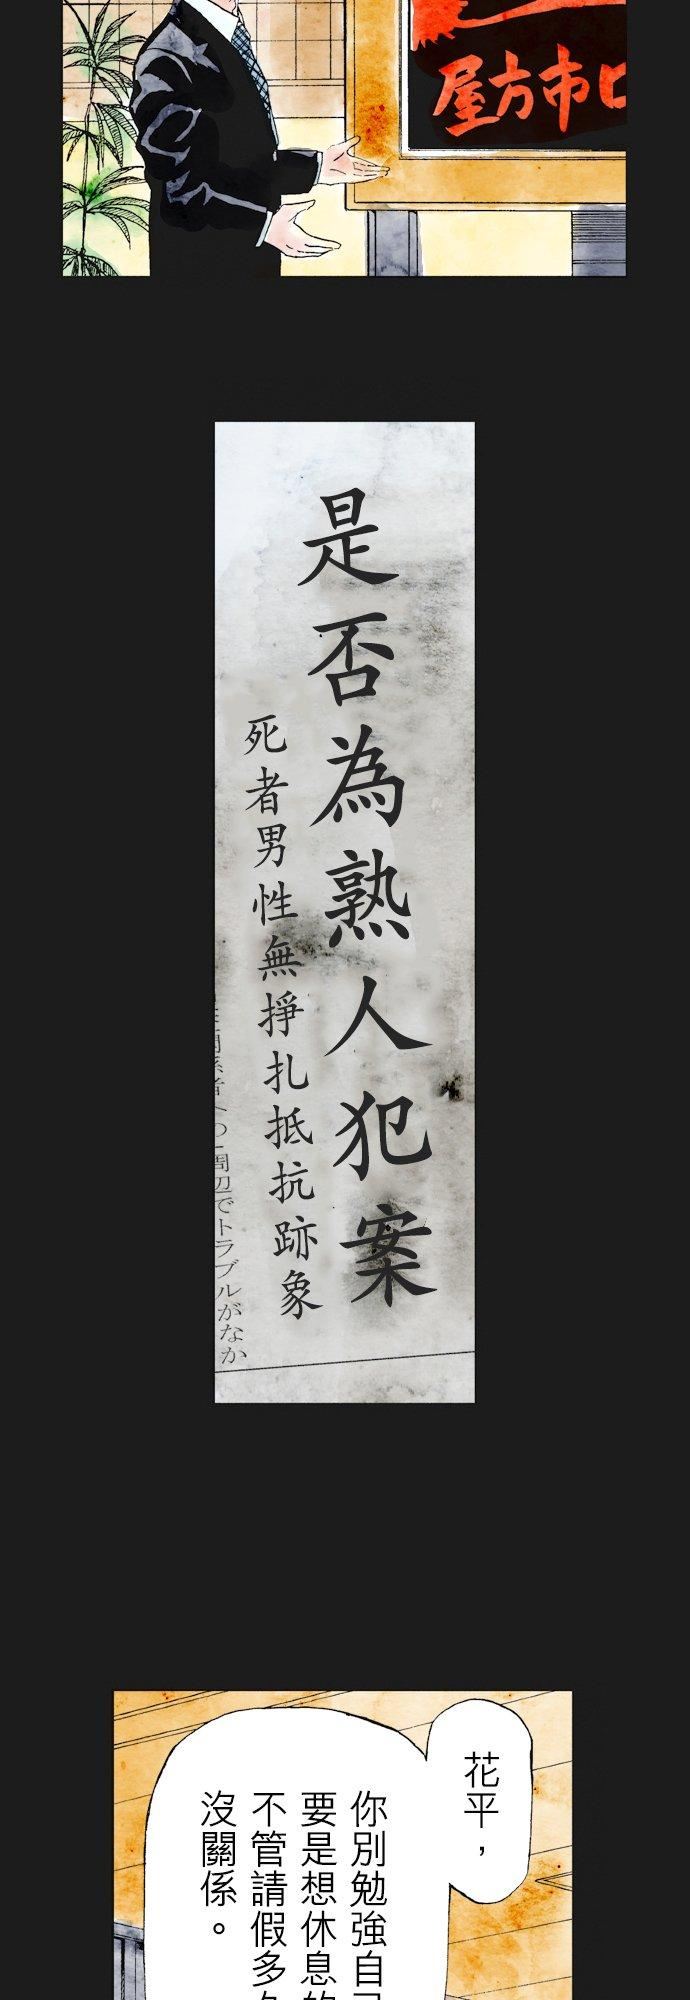 屋方市口
是否為熟人犯案
死者男性無掙扎抵抗跡象
周辺でトラブルがなか
花平，
你別勉強自己
要是想休息的
不管請假多久
沒關係。